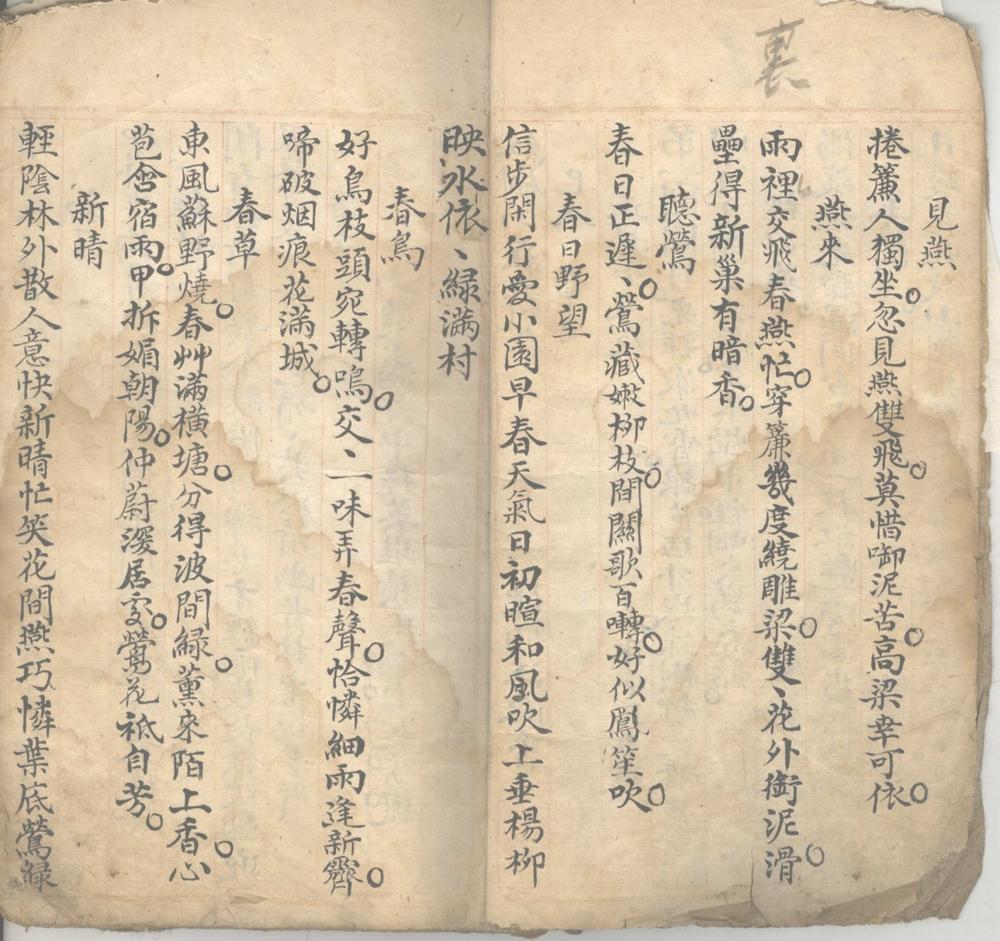 裏
見燕
捲簾人獨坐忽見燕雙飛莫惜啣泥苦高梁幸可依
燕來
雨裡交飛春燕忙穿簾幾度繞雕梁雙〻花外銜泥滑
壘得新巢有暗香
聽鶯
春日正遲〻鶯藏嫩柳枝間關歌百囀好似鳳笙吹
春日野望
信步閑行愛小園早春天氣日初暄和風吹上垂楊柳
映水依〻綠滿村
春鳥
好鳥枝頭宛轉鳴交〻一味弄春聲恰憐細雨逢新霽
啼破烟痕花滿城
春草
東風蘇野燒春艸滿橫塘分得波間綠薰來陌上香心
苞含宿雨甲拆媚朝陽仲蔚深居處鶯花祗自芳
新晴
輕陰林外散人意快新晴忙笑花間燕巧憐葉底鶯綠